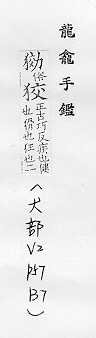 龍龕手鑑
俗狡正古巧反疾也健
也猾也狂也二
(犬部 V2 P47 B7)